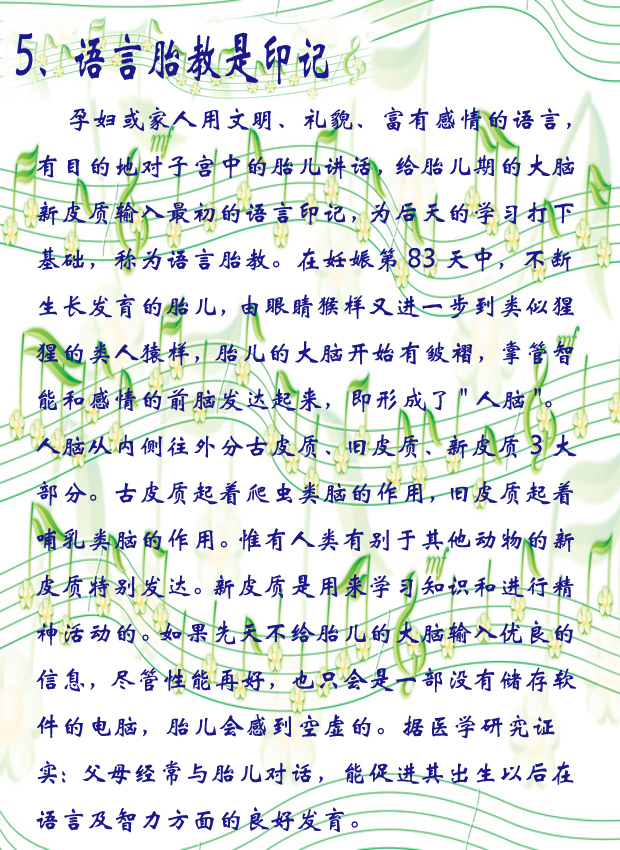 5、语言胎教是印记
孕妇或家人用文明、礼貌、富有感情的语言，
有目的地对子宫中的胎儿讲话，给胎儿期的大脑
新皮质输入最初的语言印记，为后天的学习打下
基础，称为语言胎教。在妊娠第83天中，不断
生长发育的胎儿，由眼睛猴样又进一步到类似猩
猩的类人猿样，胎儿的大脑开始有皱褶，掌管智
能和感情的前脑发达起来，即形成了"人脑"。
人脑从内侧往外分古皮质、旧皮质、新皮质3大
部分。古皮质起着爬虫类脑的作用，旧皮质起着
哺乳类脑的作用。惟有人类有别于其他动物的新
皮质特别发达。新皮质是用来学习知识和进行精
神活动的。如果先天不给胎儿的大脑输入优良的
信息，尽管性能再好，也只会是一部没有储存软
件的电脑，胎儿会感到空虚的。据医学研究证
实：父母经常与胎儿对话，能促进其出生以后在
语言及智力方面的良好发育。